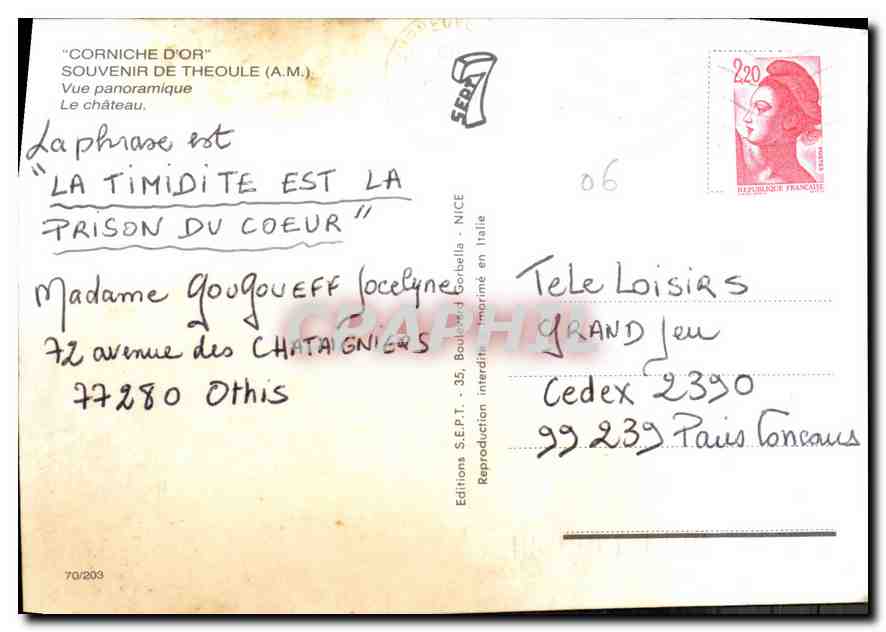 "CORNICHE D'OR"
SOUVENIR DE THEOULE (A.M.)
Vue panoramique
Le château.
La phrase est
"LA TIMIDITE EST LA
PRISON DU COEUR"
Madame GOUGOUEFF Jocelyne
72 avenue des CHATAIGNIERS
77280 Othis
70/203
SEPT
7
Editions S.E.P.T. - 35, Boulevard Gorbella - NICE
Reproduction interdite Imprimé en Italie
CPAPHIL
06
2,20
POSTES
REPUBLIQUE FRANCAISE
Tele Loisirs
GRAND Jeu
Cedex 2390
99 239 Paris Concours